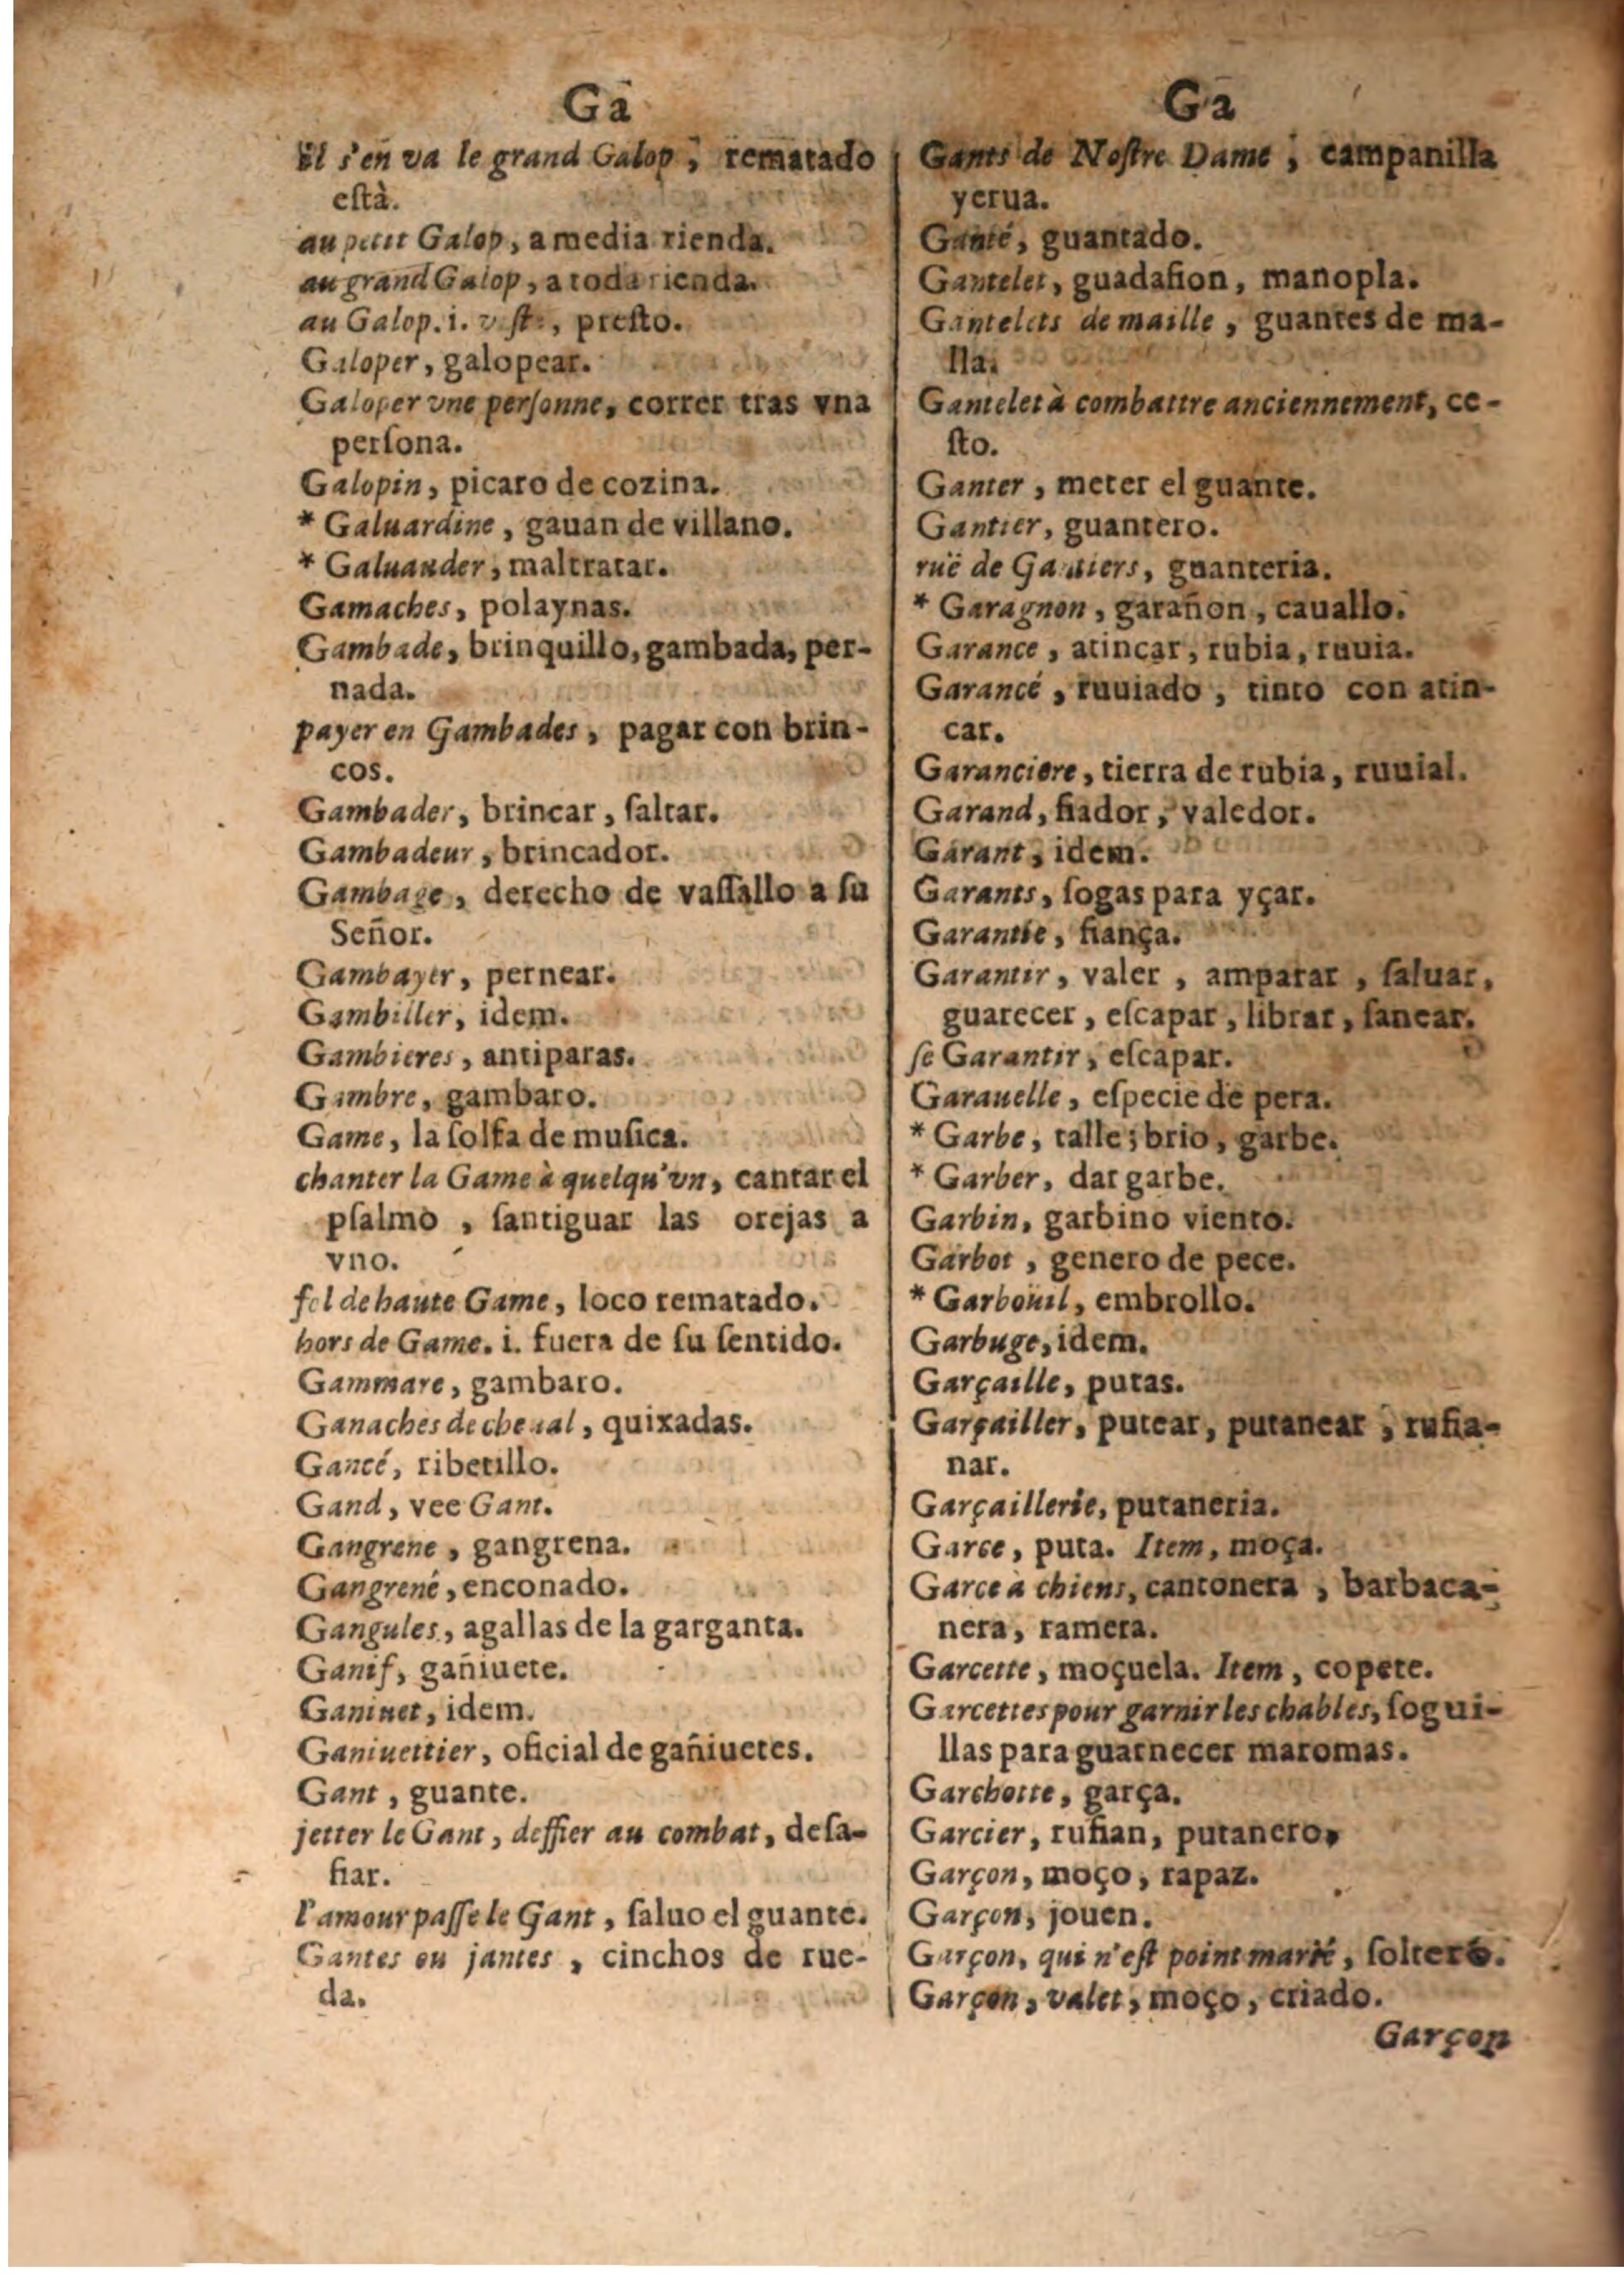 Ga
El s'en va le grand Galop, rematado
està.
au petit Galop, a media rienda.
au grand Galop, a toda rienda.
au Galop. i. viste, presto.
Galoper, galopear.
Galoper vne personne, correr tras vna
persona.
Galopin, picaro de cozina.
* Galuardine, gauan de villano.
* Galuauder, maltratar.
Gamaches, polaynas.
Gambade, brinquillo, gambada, per-
nada.
payer en Gambades, pagar con brin-
cos.
Gambader, brincar, saltar.
Gambadeur, brincador.
Gambage, derecho de vassallo a su
Señor.
Gambayer, pernear.
Gambiller, idem.
Gambieres, antiparas.
Gambre, gambaro.
Game, la solfa de musica.
chanter la Game à quelqu'vn, cantar el
psalmo, santiguar las orejas a
vno.
fol de haute Game, loco rematado.
hors de Game. i. fuera de su sentido.
Gammare, gambaro.
Ganaches de cheual, quixadas.
Gancé, ribetillo.
Gand, vee Gant.
Gangrene, gangrena.
Gangrené, enconado.
Gangules, agallas de la garganta.
Ganif, gañiuete.
Ganiuet, idem.
Ganiuettier, oficial de gañiuetes.
Gant, guante.
jetter le Gant, deffier au combat, desa-
fiar.
l'amour passe le Gant, saluo el guante.
Gantes ou jantes, cinchos de rue-
da.
Ga
Gants de Nostre Dame, campanilla
yerua.
Ganté, guantado.
Gantelet, guadafion, manopla.
Gantelets de maille, guantes de ma-
lla.
Gantelet à combattre anciennement, ce-
sto.
Ganter, meter el guante.
Gantier, guantero.
ruë de Gantiers, guanteria.
* Garagnon, garañon, cauallo.
Garance, atincar, rubia, ruuia.
Garancé, ruuiado, tinto con atin-
car.
Garanciere, tierra de rubia, ruuial.
Garand, fiador, valedor.
Garant, idem.
Garants, sogas para yçar.
Garantie, fiança.
Garantir, valer, amparar, saluar,
guarecer, escapar, librar, sanear.
se Garantir, escapar.
Garauelle, especie de pera.
* Garbe, talle, brio, garbe.
* Garber, dar garbe.
Garbin, garbino viento.
Garbot, genero de pece.
* Garbouïl, embrollo.
Garbuge, idem.
Garçaille, putas.
Garçailler, putear, putanear, rufia-
nar.
Garçaillerie, putaneria.
Garce, puta. Item, moça.
Garce à chiens, cantonera, barbaca-
nera, ramera.
Garcette, moçuela. Item, copete.
Garcettes pour garnir les chables, sogui-
llas para guarnecer maromas.
Garchotte, garça.
Garcier, rufian, putanero,
Garçon, moço, rapaz.
Garçon, jouen.
Garçon, qui n'est point marié, soltero.
Garçon, valet, moço, criado.
Garçon